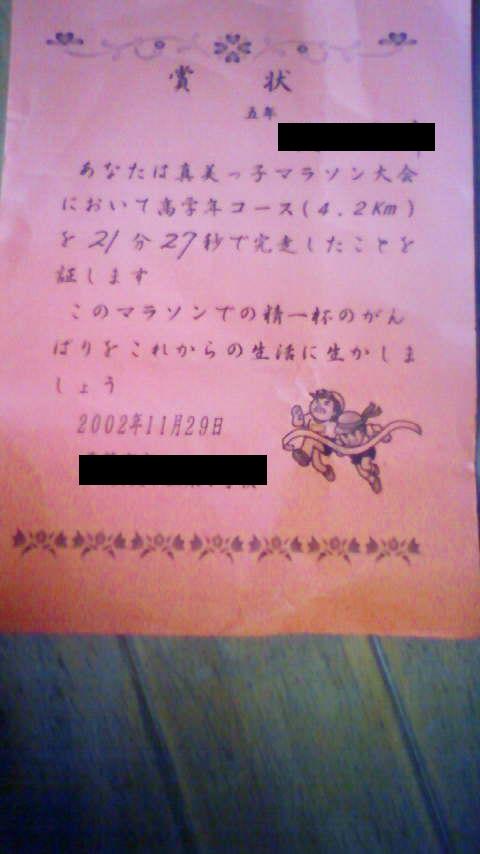 賞 状
五年
あなたは真美っ子マラソン大会
において高学年コース(4.2Km)
を21分27秒で完走したことを
証します
このマラソンでの精一杯のがん
ばりをこれからの生活に生かしま
しょう
2002年11月29日